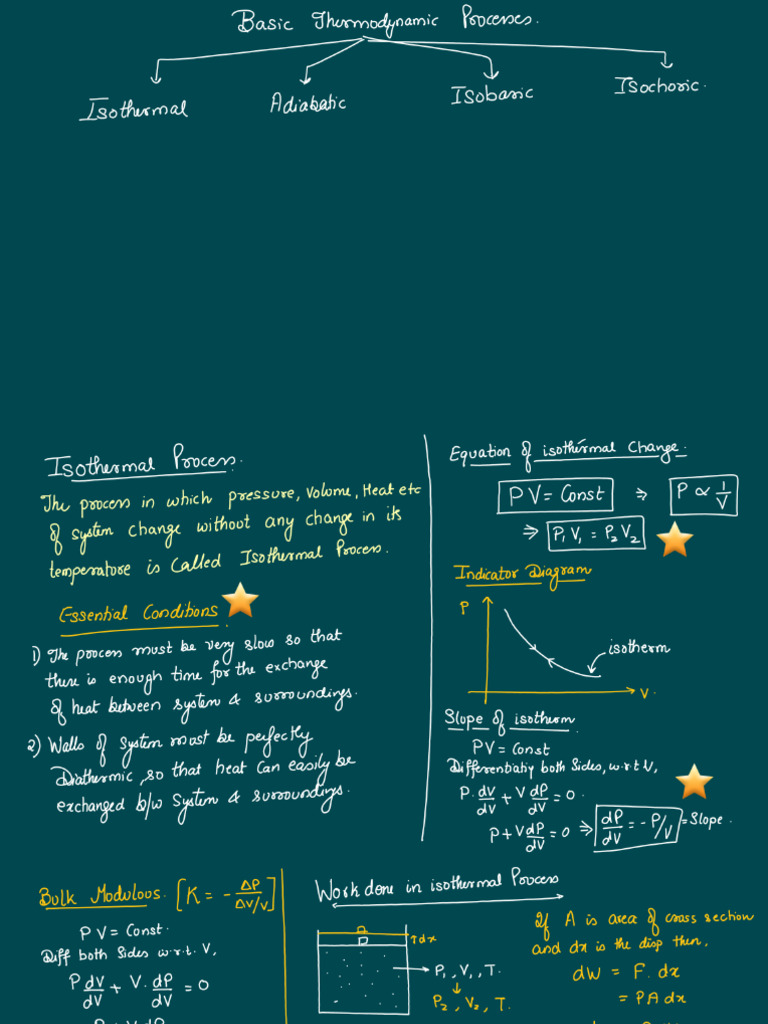 Basic Thermodynamic Processes.
Isothermal Adiabatic Isobaric Isochoric.
Isothermal Process.
The process in which pressure, Volume, Heat etc
of system change without any change in its
temperature is called Isothermal Process.
Essential Conditions
1) The process must be very slow so that
there is enough time for the exchange
of heat between system & surroundings.
2) Walls of system must be perfectly
Diathermic, so that heat can easily be
exchanged b/w System & surroundings.
Equation of isothermal Change.
PV = Const ⇒ P ∝ 1/V
⇒ P₁V₁ = P₂V₂
Indicator Diagram
P
isotherm
V.
Slope of isotherm
PV = Const
Differentiatiy both Sides, w.r.t V,
P. dV/dV + V dP/dV = 0.
P + V dP/dV = 0 ⇒ dP/dV = -P/V = Slope.
Bulk Modulous. [K = - ΔP/ΔV/V]
PV = Const.
Diff both Sides w.r.t. V,
P dV/dV + V. dP/dV = 0
Work done in isothermal Process
↑dx
P₁, V₁, T.
P₂, V₂, T.
If A is area of cross section
and dx is the disp then,
dW = F. dx
= PA dx